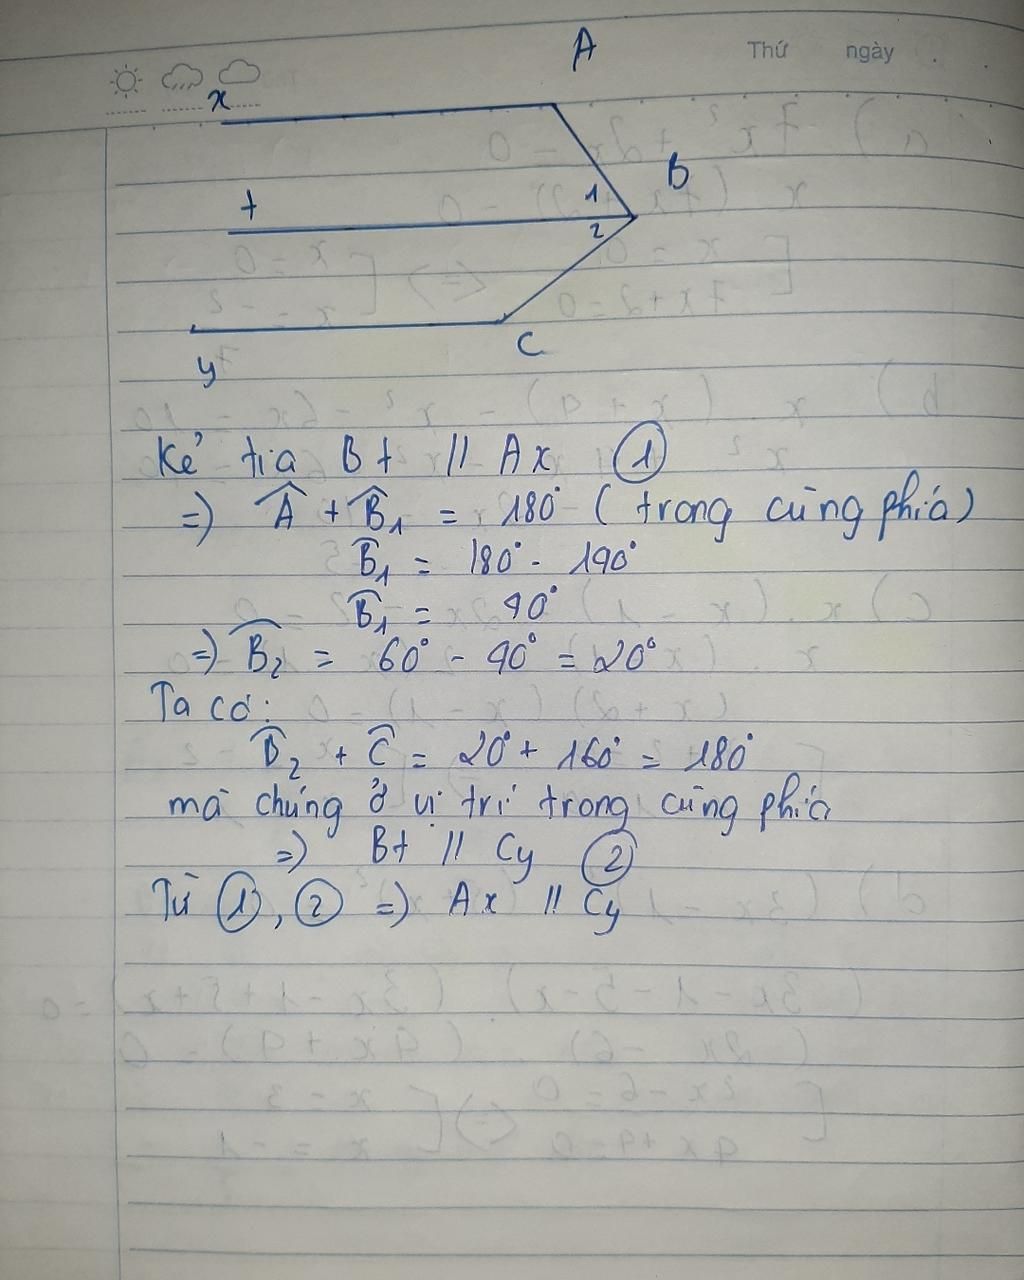 Thứ ngày
x
A
B
t
1
2
C
y
Kẻ tia Bt // Ax ①
=) Â + B̂₁ = 180° ( trong cùng phía)
B̂₁ = 180° - 140°
B̂₁ = 40°
=) B̂₂ = 60° - 40° = 20°
Ta có:
B̂₂ + Ĉ = 20° + 160° = 180°
mà chúng ở vị trí trong cùng phía
=) Bt // Cy ②
Từ ①, ② =) Ax // Cy